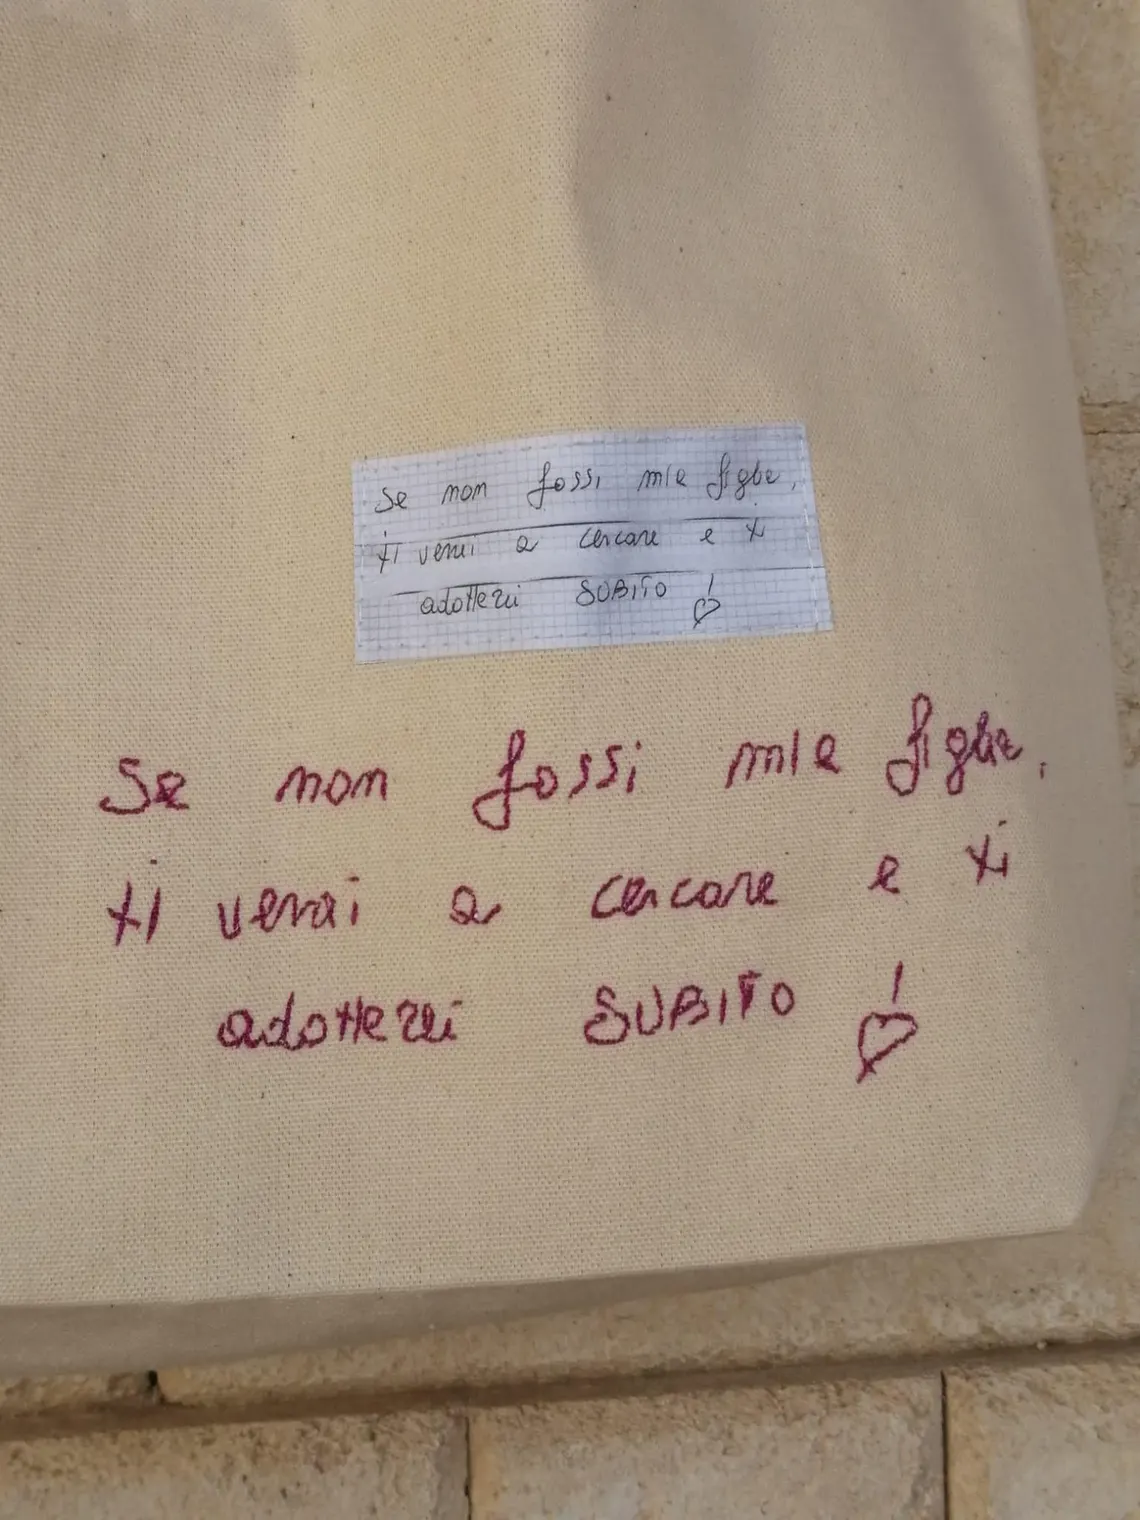 Se non fossi mia figlia,
ti verrei a cercare e ti
adotterei SUBITO !
Se non fossi mia figlia,
ti verrei a cercare e ti
adotterei SUBITO !